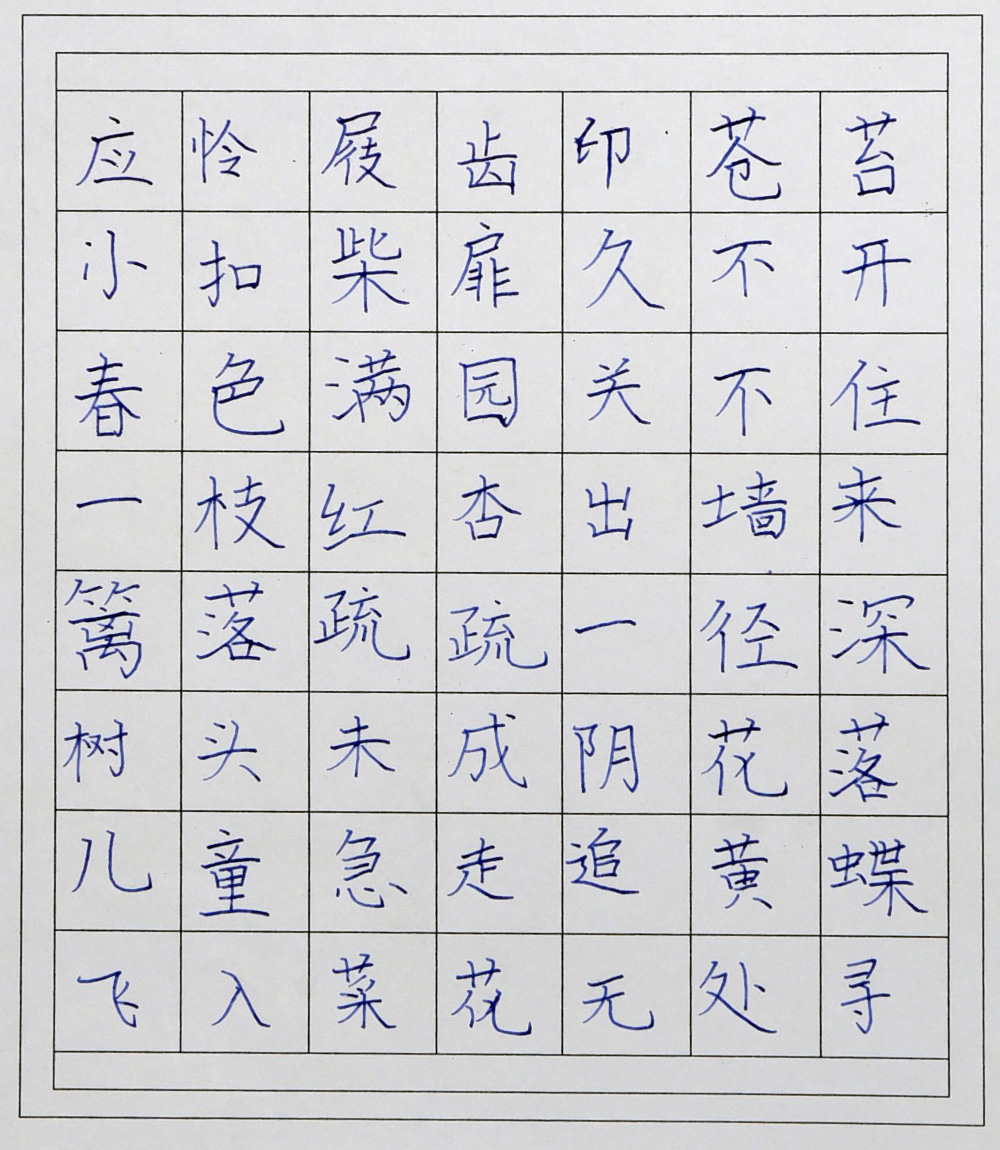 应怜屐齿印苍苔
小扣柴扉久不开
春色满园关不住
一枝红杏出墙来
篱落疏疏一径深
树头未成阴花落
儿童急走追黄蝶
飞入菜花无处寻